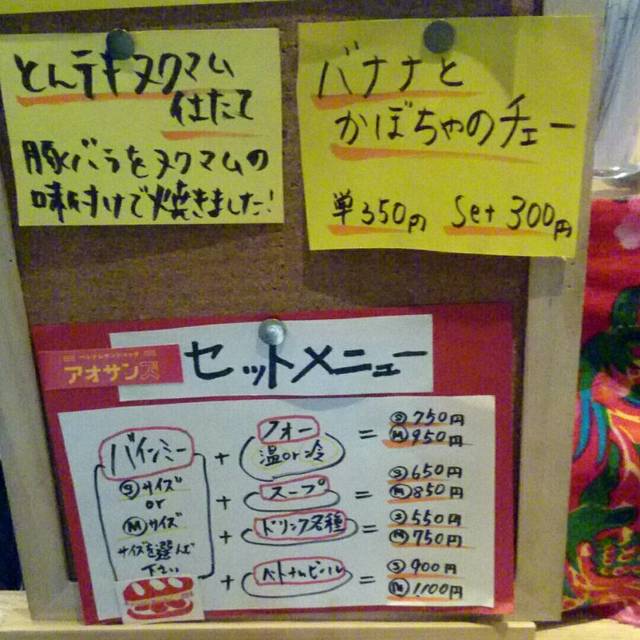 とんテキヌクマム
仕たて
豚バラをヌクマムの
味付けで焼きました!
バナナと
かぼちゃのチェー
単350円 Set 300円
アオサンズ
セットメニュー
バインミー
Ⓢサイズ
or
Ⓜサイズ
サイズを選んで
下さい
+ フォー 温or冷 = Ⓢ750円
Ⓜ950円
+ スープ = Ⓢ650円
Ⓜ850円
+ ドリンク各種 = Ⓢ550円
Ⓜ750円
+ ベトナムビール = Ⓢ900円
Ⓜ1100円